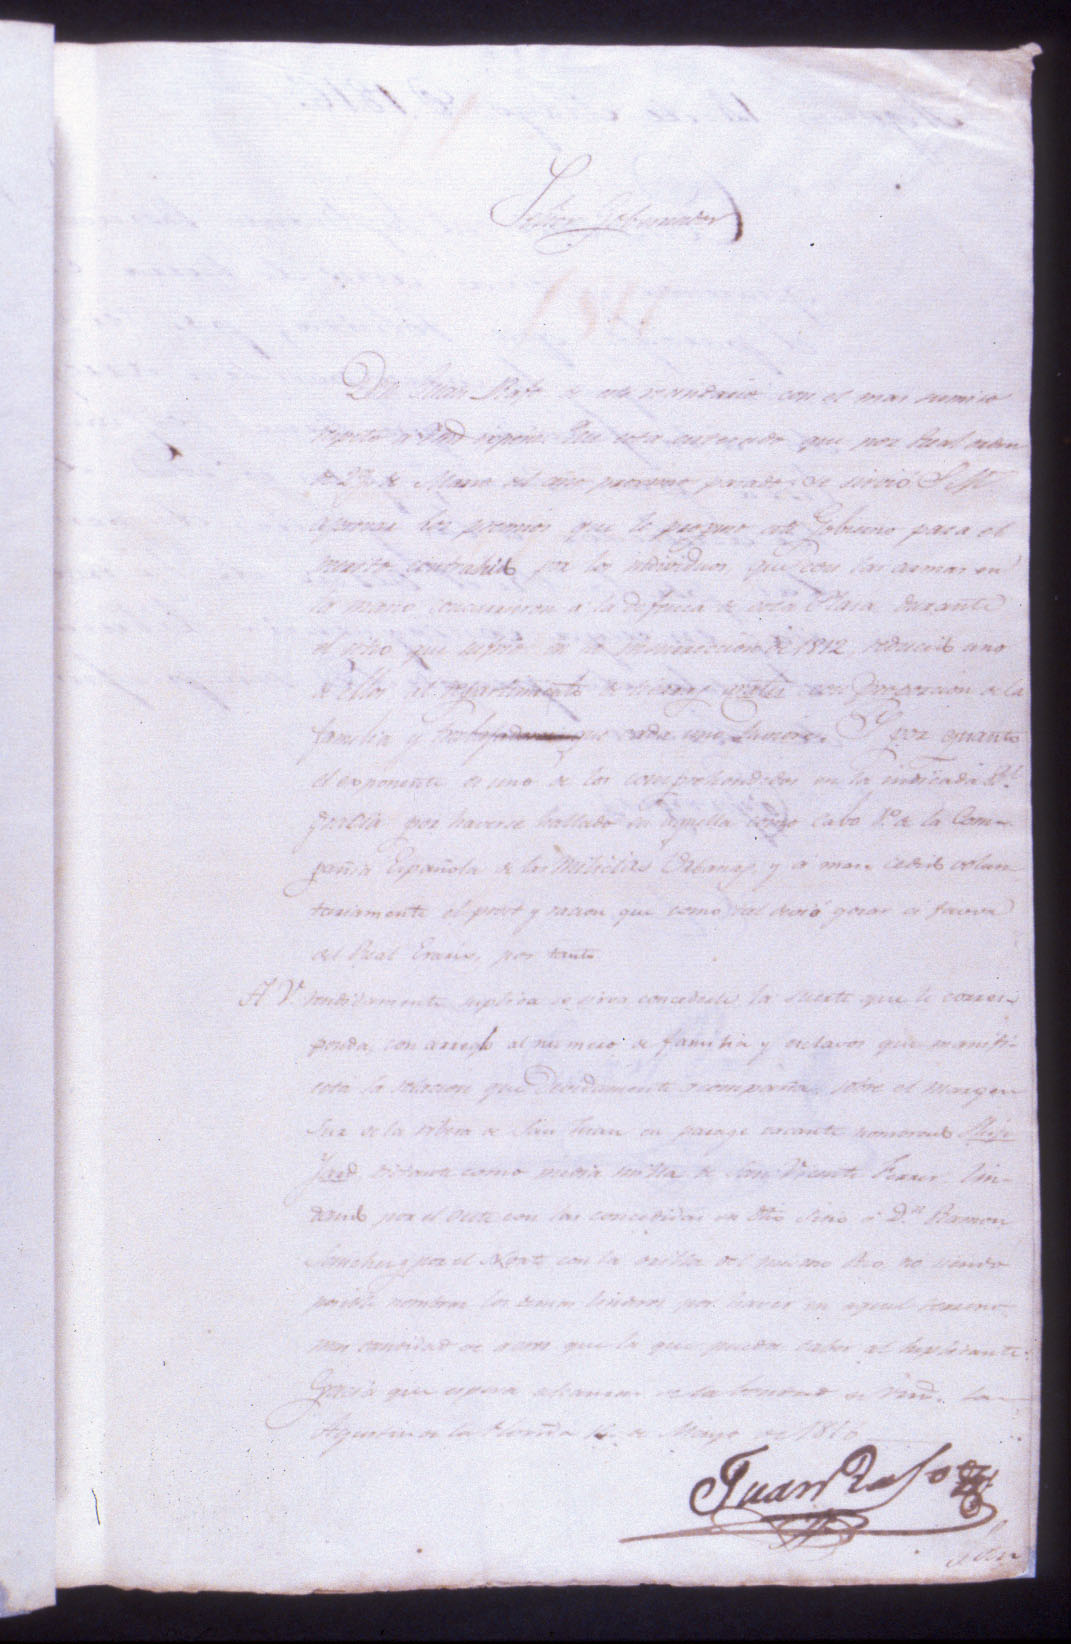 Señor Gobernador
Don Juan Rafo de este vecindario con el mas sumiso
respeto a Vmd expone: Que esta enterado que por Real orden
de 29 de Marzo del año proximo pasado se sirvió S M
aprovar los premios que le propuso este Gobierno para el
merito contrahido por los individuos, que con las armas en
la mano concurrieron a la defensa de esta Plaza durante
el sitio que sufrio en la insurreccion de 1812, reducido uno
de ellos al repartimiento de tierras gratis con proporcion de la
familia y que cada uno tuviere. Y por quanto
el exponente es uno de los comprehendidos en la indicada Rl.
gracia por haverse hallado en aquella como Cabo 1º. de la Com-
pañia Española de las Milicias Urbanas, y á mas cedido volun-
tariamente el prest y racion que como tal devió gozar á favor
del Real Erario, por tanto
A V. rendidamente suplica se sirva concederle la suerte que le corres-
ponda, con arreglo al numero de familia y esclavos que manifi-
esta la relacion que devidamente acompaña, sobre el margen
Sur de la ribera de San Juan en parage vacante nombrado
distante como media milla de San Vicente Ferrer, lin-
dando por el oeste con las concedidas en dho sitio á Dn. Ramon
Sanchez y por el Norte con la orilla del mismo Rio, no siendo
posible nombrar los demas linderos por haver en aquel terreno
mas cantidad de acres que la que pueda caber al suplicante.
Gracia que espera alcanzar de la bondad de Vmd. Sn
Agustin de la Florida 14 de Mayo de 1816
Juan Rafo